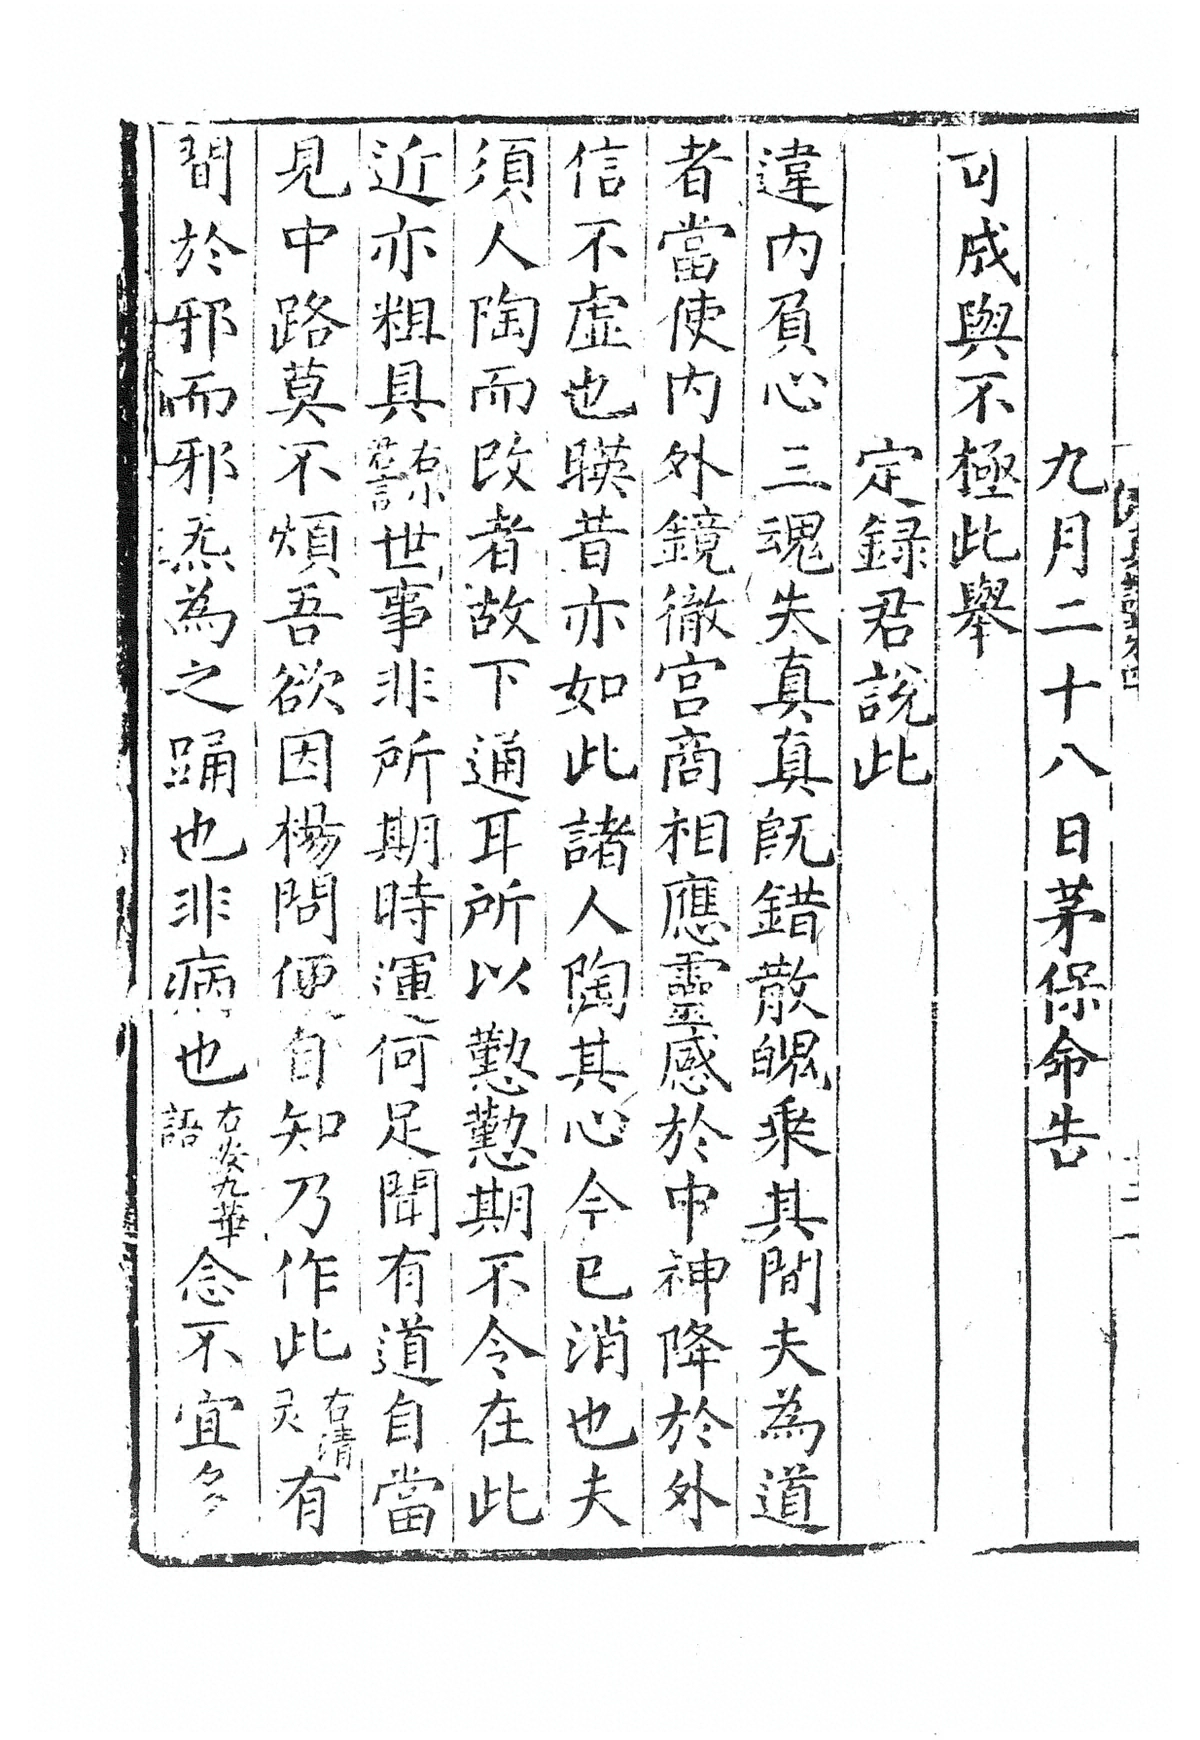 九月二十八日茅保命告
可成與不極此舉
定録君說此
違内負心三魂失真真旣錯散魄乘其間夫為道
者當使内外鏡徹宫商相應靈感於中神降於外
信不虚也暎昔亦如此諸人陶其心今已消也夫
須人陶而改者故下通耳所以懃懃期不令在此
近亦粗具右小茅言世事非所期時運何足聞有道自當
見中路莫不煩吾欲因楊問便自知乃作此右清灵有
間於邪而邪炁為之踊也非病也右安九華語念不宜多